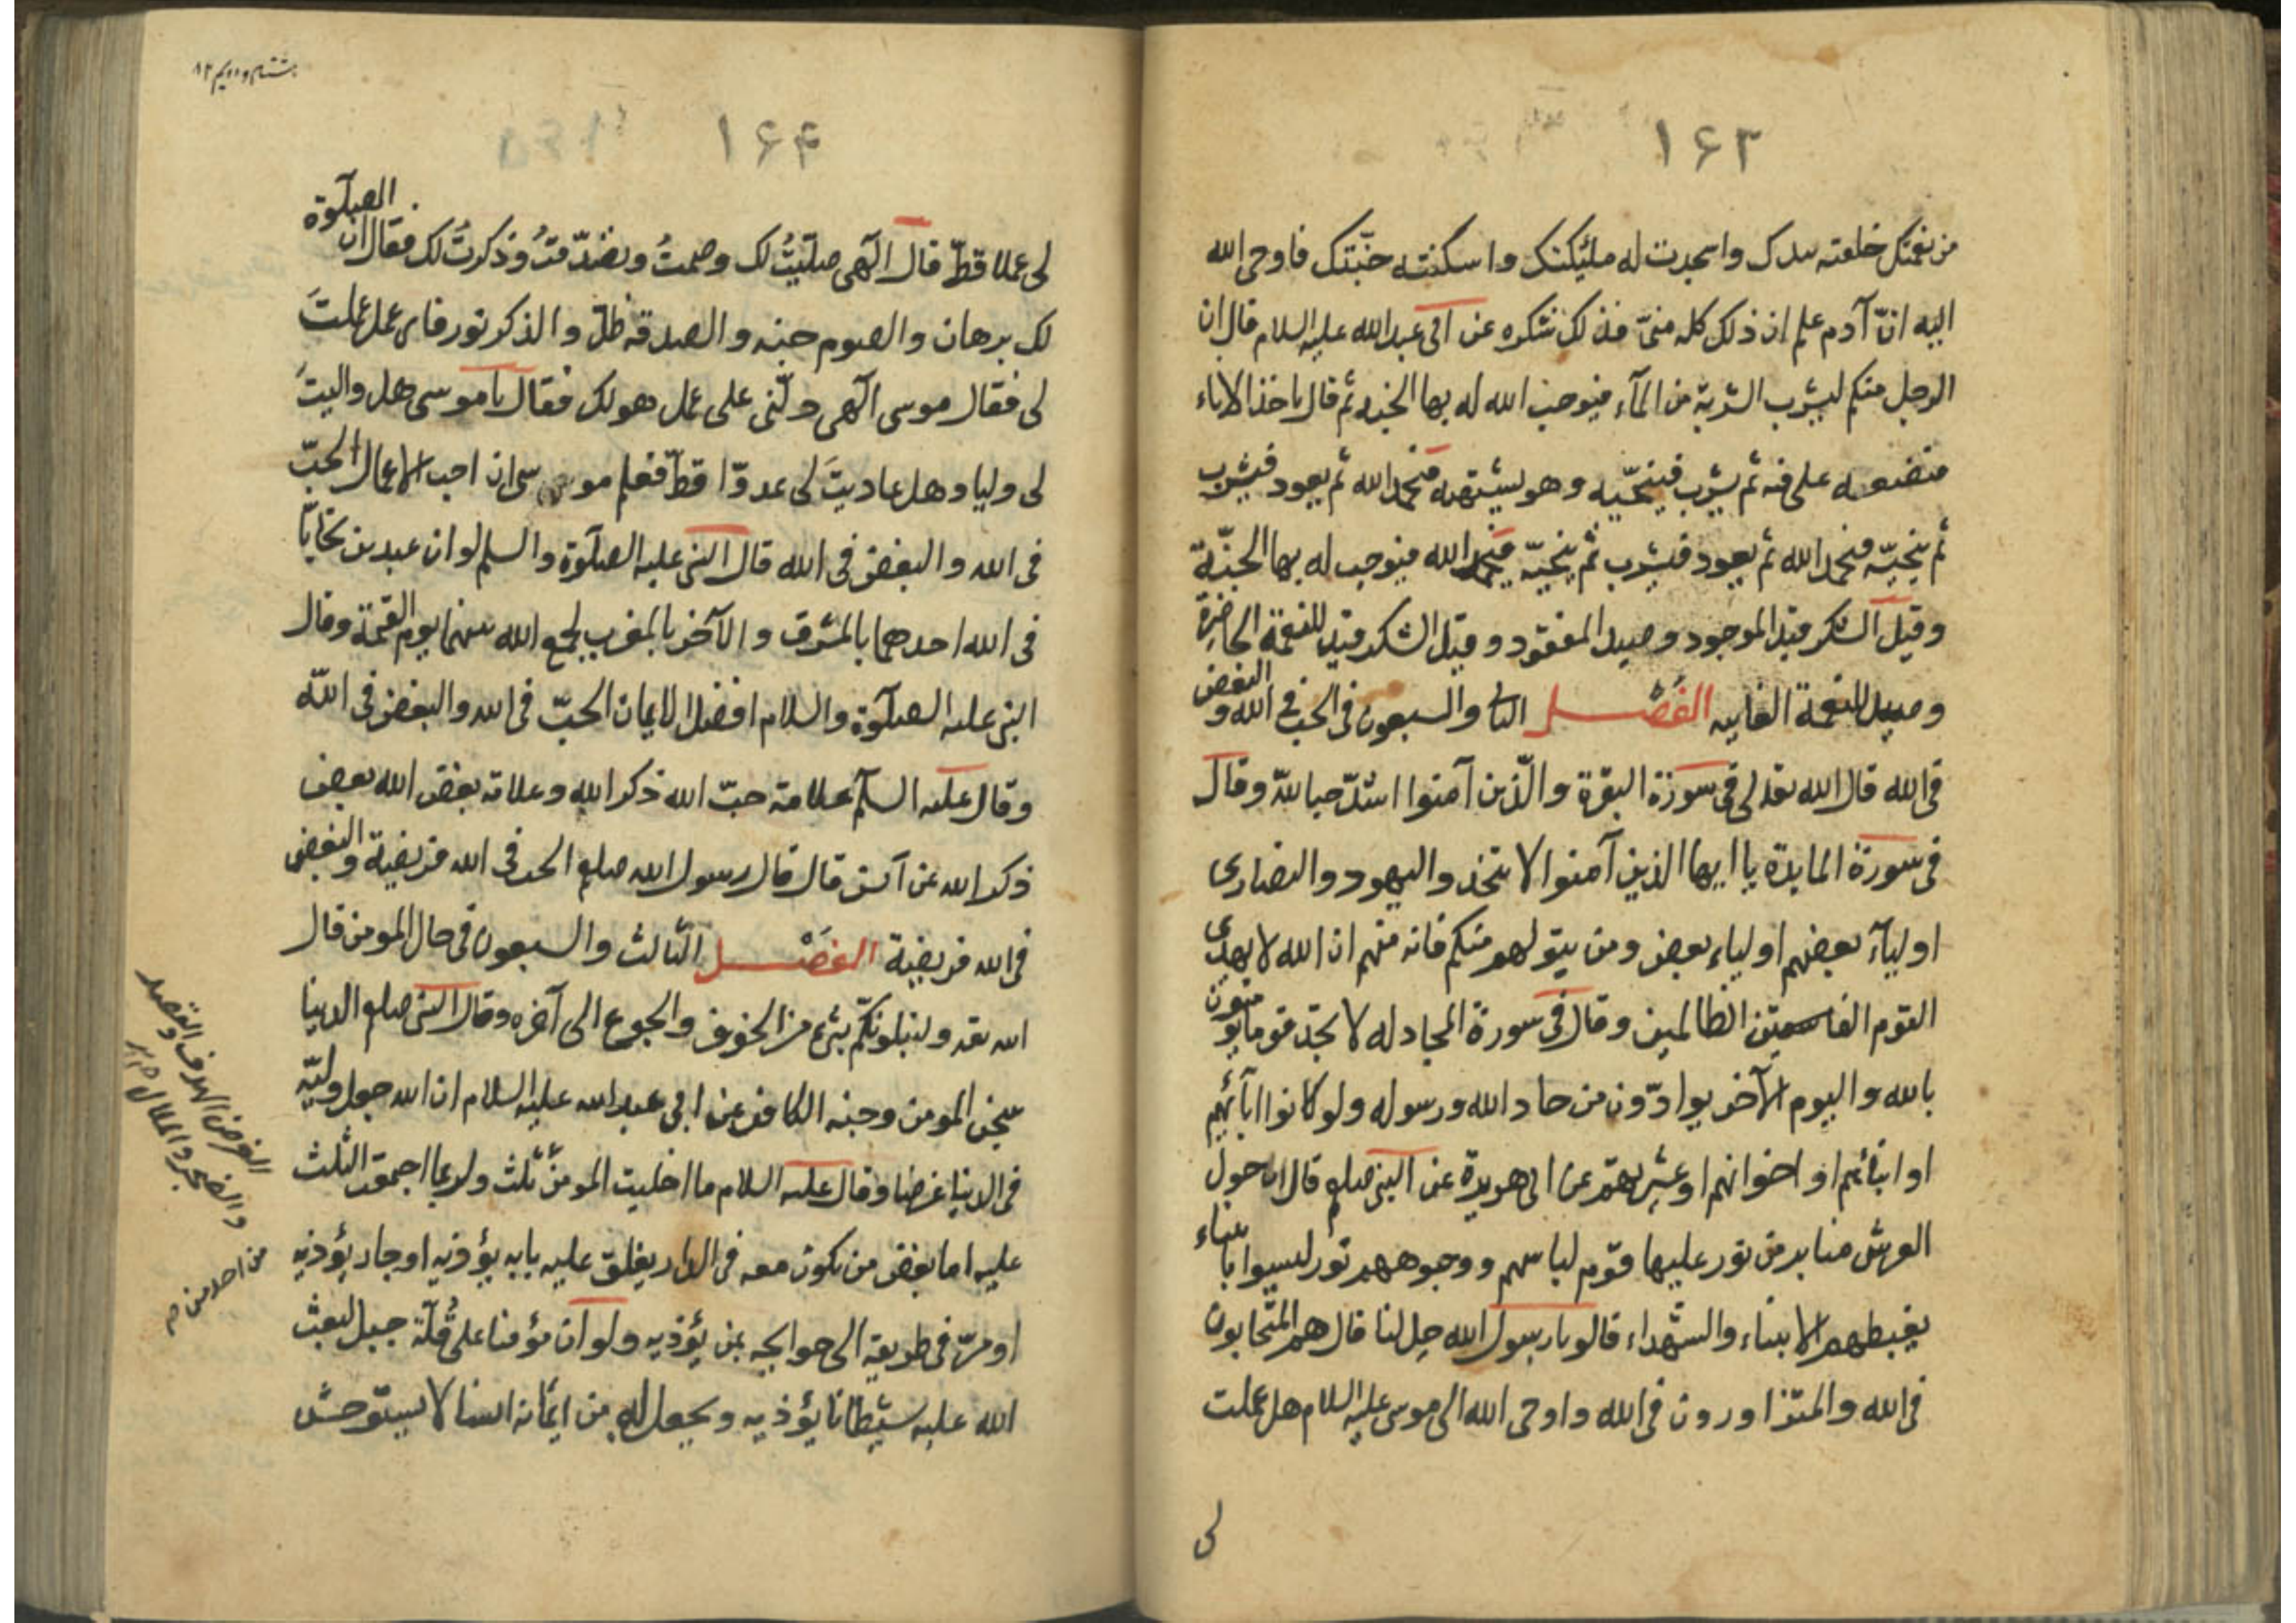 ١۶٣
من نعمتك خلقته بيدك واسجدت له ملئيكتك واسكنته جنّتك فاوحى الله
اليه انّ آدم علم ان ذلك كله منىّ فذلك شكره عن ابى عبدالله عليه السلام قال ان
الرجل منكم ليشرب الشربة من المآء فيوجب الله له بها الجنه ثم قال ياخذ الاناء
فيضعه على فيه ثم يشرب فينحّيه وهو يشتهيه فيحمد الله ثم يعود فيشرب
ثم ينحيّه فيحمد الله ثم يعود فيشرب ثم ينحيّه فيحمد الله فيوجب له بها الجنّة
وقيل الشكر قيد الموجود وصيد المفقود وقيل الشكر قيد للنعمة الحاضرة
وصيد للنعمة الغايبه الفَصْل الثانى والسبعون فى الحب فى الله و البغض
فى الله قال الله تعالى فى سورة البقرة والّذين آمنوا اشدّ حبا للّه وقال
فى سورة المايدة يا ايها الذين آمنوا لا تتخذوا اليهود والنصارى
اوليآء بعضهم اولياء بعض ومن يتولهم منكم فانه منهم ان الله لا يهدى
القوم الظالمين وقال فى سورة المجادله لا تجد قوما يؤمنون
بالله واليوم الآخر يوادّون من حاد الله ورسوله ولو كانوا ابآئهم
او ابنائهم او اخوانهم او عشيرتهم عن ابى هريرة عن النبى صلعم قال ان حول
العرش منابر من نور عليها قوم لباسهم ووجوههم نور ليسوا بانبياء
يغبطهم الانبياء والشهداء قالو يا رسول الله حل لنا قال هم المتحابون
فى الله والمتزاورون فى الله واوحى الله الى موسى عليه السلام هل عملت
لى
هشتاد و دويم ٨٢
١۶۴
لى عملا قطّ قال الٓهى صلّيتُ لك وصمتُ وتصدّقتُ وذكرتُ لك فقال ان الصلٓوة
لك برهان والصوم جنه والصدقه ظلّ والذكر نور فاى عمل عملتَ
لى فقال موسى الٓهى دلّنى على عمل هو لك فقال يا موسى هل واليتَ
لى وليا وهل عاديتَ لى عدوّا قطّ فعلم موسى ان احب الاعمال الحبّ
فى الله والبغض فى الله قال النبى عليه الصلٓوة والسلم لو ان عبدين تحابّا
فى الله احدهما بالمشرق والآخر بالمغرب لجمع الله بينهما يوم القيمة وقال
النبى عليه الصلٓوة والسلام افضل الايمان الحبّ فى الله والبغض فى اللّه
وقال عليه السلٓم علامة حبّ الله ذكر الله وعلامة بغض الله بعض
ذكر الله عن آنس قال قال رسول الله صلعم الحب فى الله فريضية والبغض
فى الله فريضية الفَصْل الثالث والسبعون فى حال المومن قال
الله تعه ولنبلونكّم بشئ من الخوف والجوع الى آخره وقال النبى صلعم الدينا
سجن المومن وجنه الكافر عن ابى عبدالله عليه السلام ان الله جعل وليّه
فى الدينا غرضا وقال عليه السلام ما افليت المومن ثلث ولربما اجمعت الثلث
عليه اما بغض من يكون معه فى الدار يغلق عليه بابه يؤذيه او جار يؤذيه
او مرّ فى طريقه الى حوايجه بمن يؤذيه ولو ان مؤمنا على قُلّة جبل لبعث
الله عليه شيطانا يؤذيه ويجعل الله من ايمانه انسا لا يستوحش
الغرض الهدف والقصد
والضجر والملال
من احد من